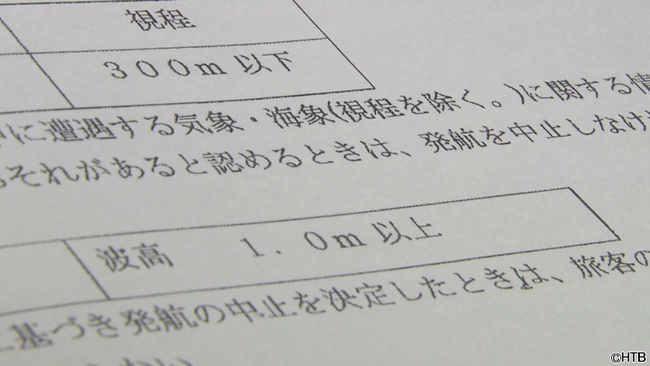 視程
300m以下
に遭遇する気象・海象(視程を除く。)に関する情
それがあると認めるときは、発航を中止しなけ
波高 1.0m以上
基づき発航の中止を決定したときは、旅客の
ない
©HTB